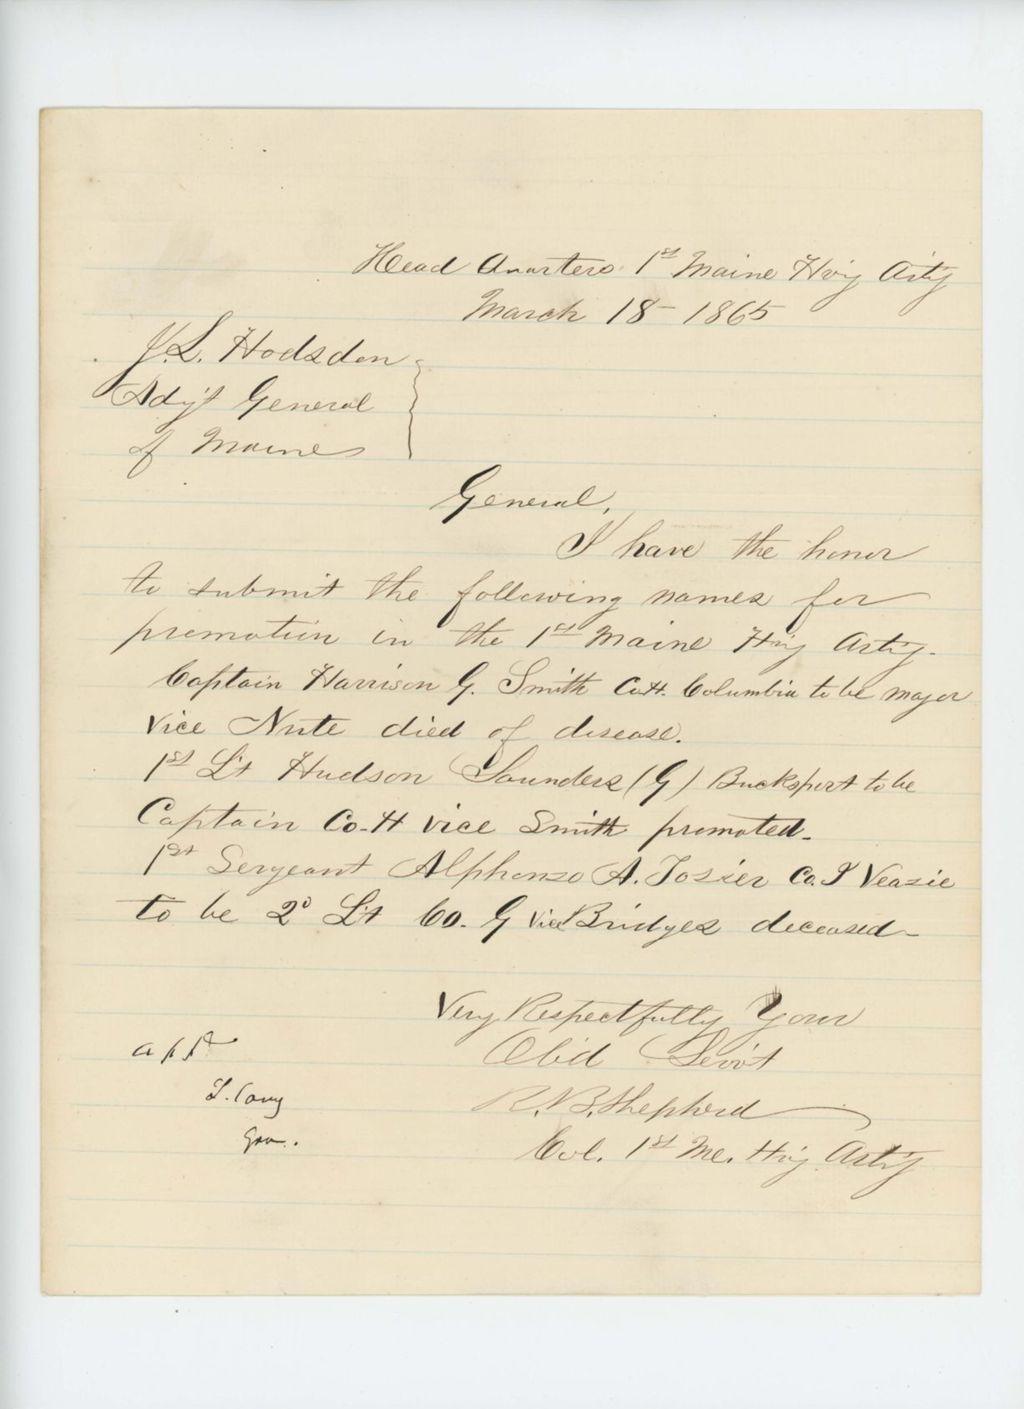 Head Quarters 1st Maine Hvy Arty
March 18- 1865
J. L. Hodsdon
Adj't General
of Maine
General,
I have the honor
to submit the following names for
promotion in the 1st Maine Hvy Arty.
Captain Harrison G. Smith Co H. Columbia to be major
Vice Nute died of disease.
1st Lt Hudson Saunders (G) Bucksport to be
Captain Co- H vice Smith promoted-
1st Sergeant Alphonzo A. Tozier Co. I Veazie
to be 2d Lt Co. G vice Bridges deceased-
Very Respectfully Your
Ob'd Serv't
R. B. Shepherd
Col. 1st Me. Hvy Arty
app
S. Cony
Gov.